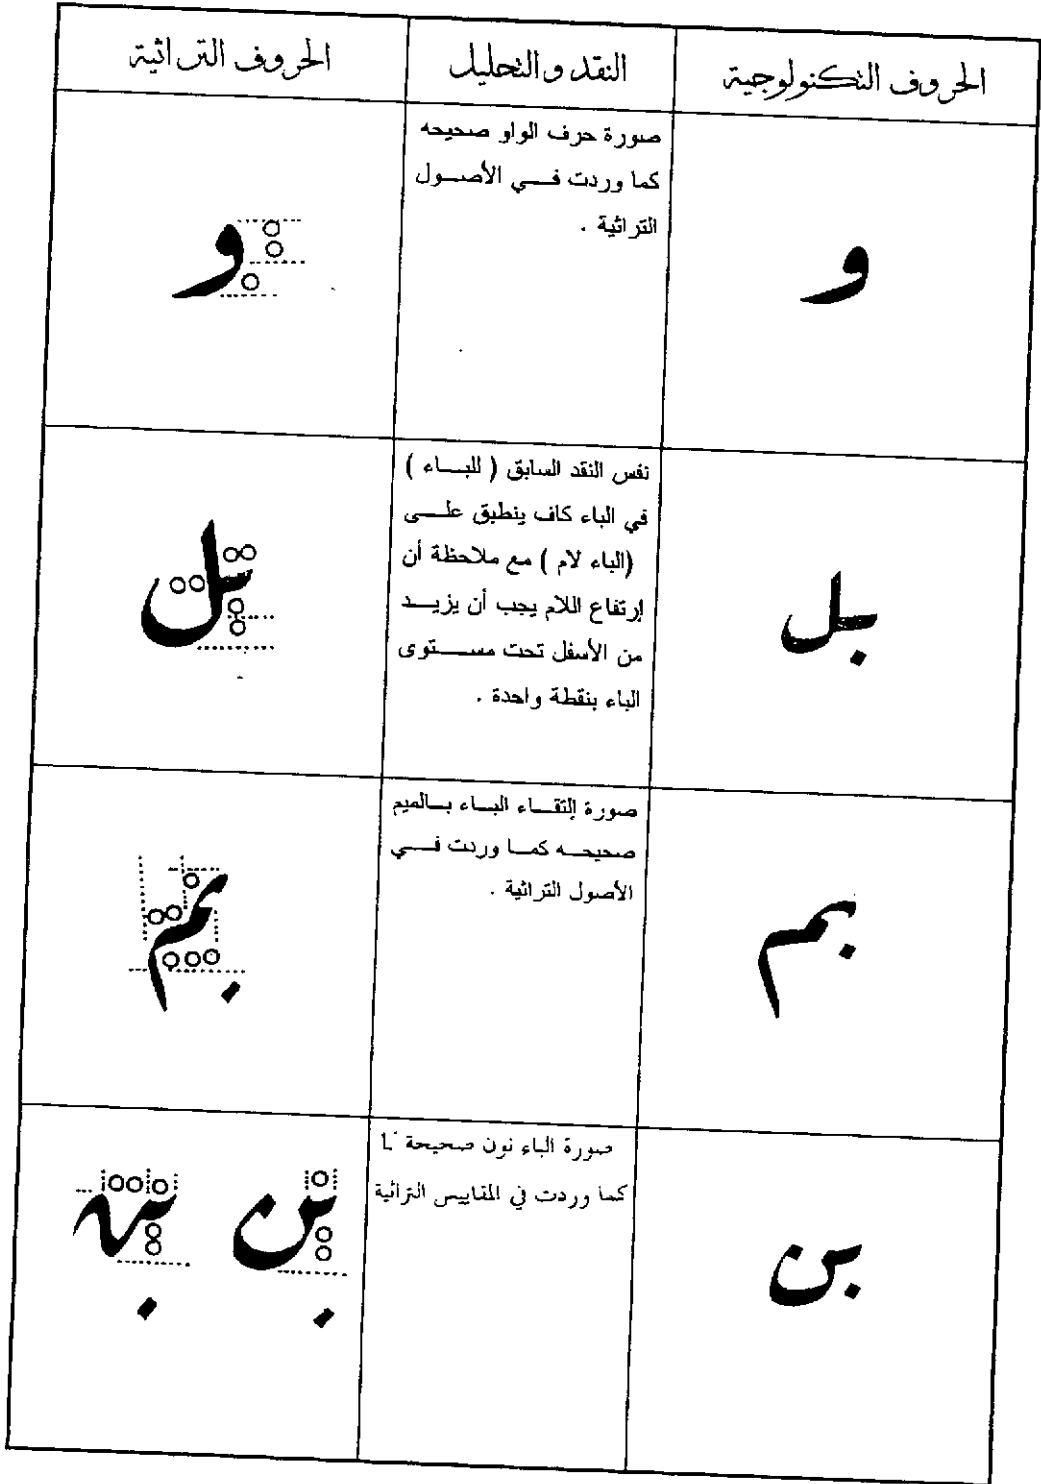 الحروف التكنولوجية
النقد والتحليل
الحروف التراثية
و
صورة حرف الواو صحيحه
كما وردت فـــي الأصــول
التراثية .
و
بل
نفس النقد السابق ( للبـــاء )
في الباء كاف ينطبق علـــى
(الباء لام ) مع ملاحظة أن
إرتفاع اللام يجب أن يزيـــد
من الأسفل تحت مســـتوى
الباء بنقطة واحدة .
بم
صورة إلتقـــاء البــاء بــالميم
صحيحــه كمــا وردت فـــي
الأصول التراثية .
بم
بن
صورة الباء نون صحيحة
كما وردت في المقاييس التراثية
بن